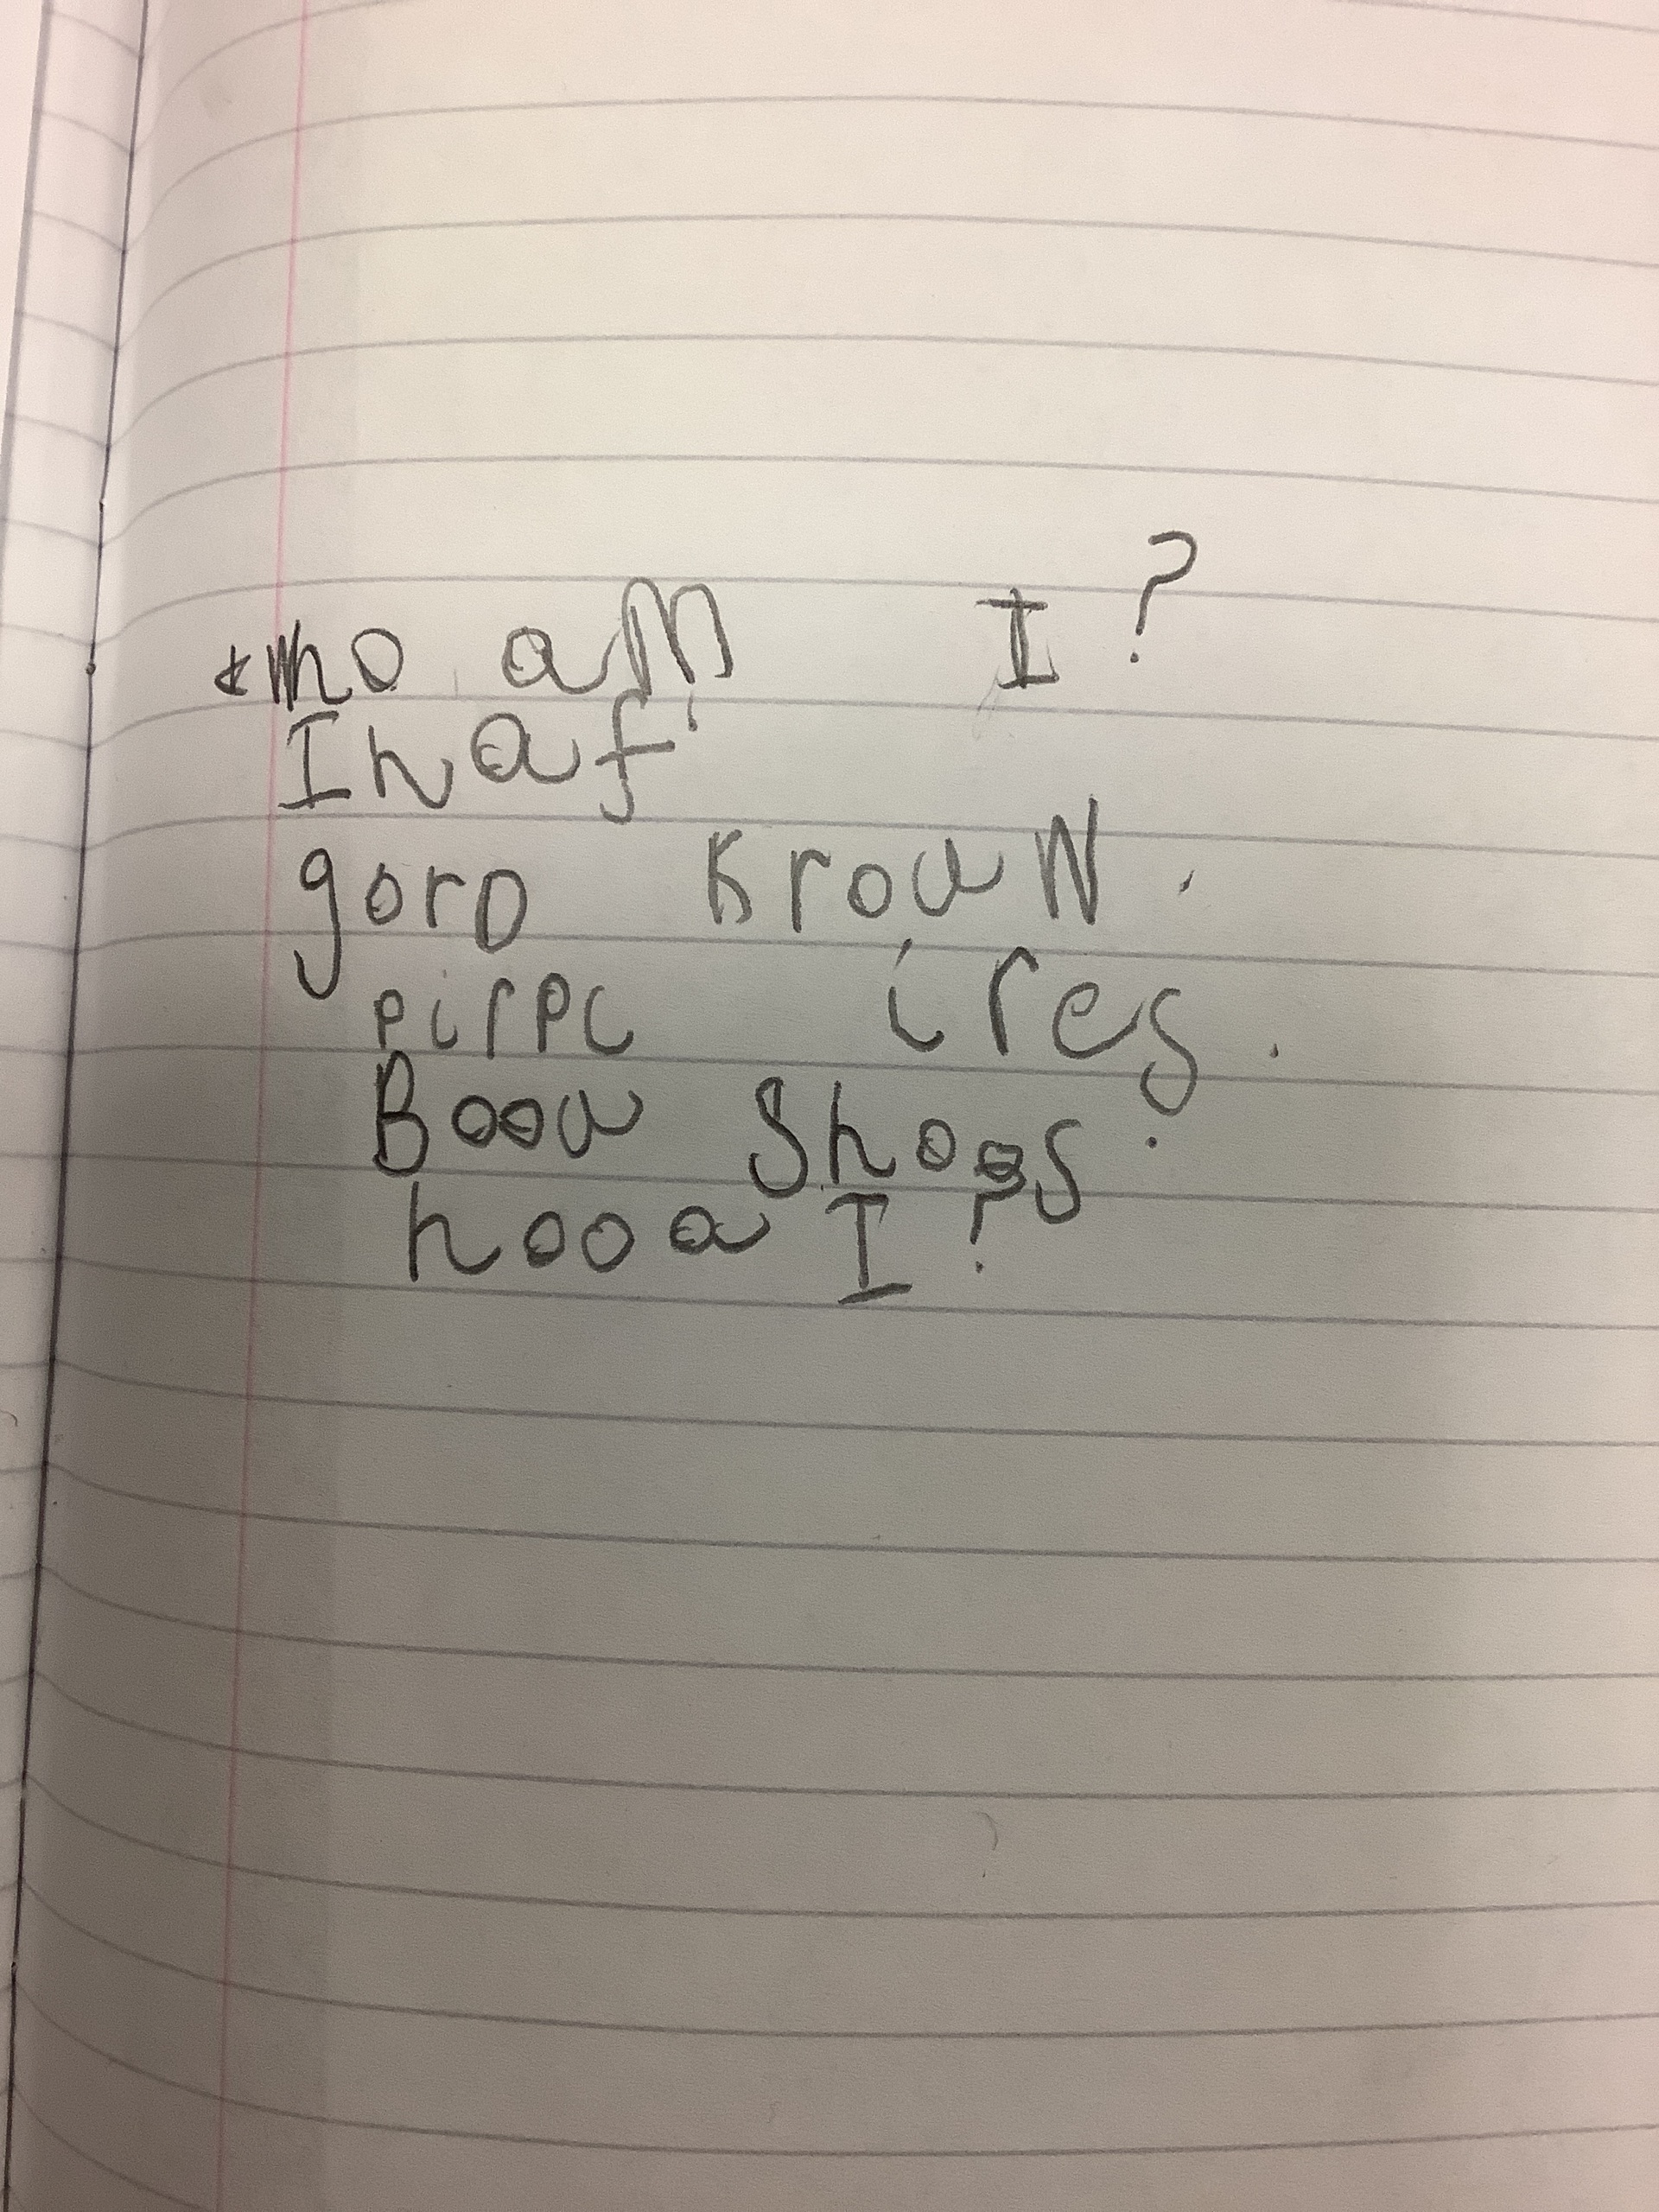 who aM I?
Ihaf
gorD KrouN.
pirpl ires.
Boou Shoes.
hooa I?